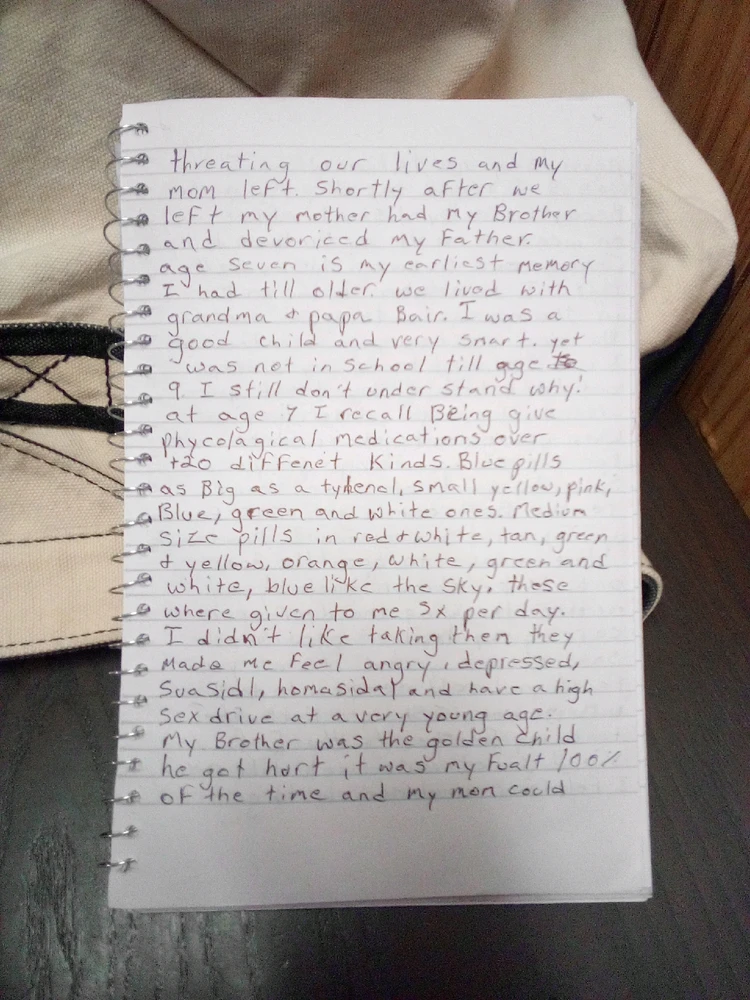 threating our lives and my
mom left. Shortly after we
left my mother had my Brother
and devoriced my Father.
age seven is my earliest memory
I had till older. we lived with
grandma + papa Bair. I was a
good child and very smart. yet
was not in school till age
9. I still don't under stand why!
at age 7 I recall Being give
phycolagical medications over
+20 diffenet Kinds. Blue pills
as Big as a tylienol, small yellow, pink,
Blue, green and white ones. Medium
size pills in red + white, tan, green
+ yellow, orange, white, green and
white, blue like the sky. these
where given to me 3x per day.
I didn't like taking them they
Made me feel angry, depressed,
Suasidl, homasidal and have a high
sex drive at a very young age.
My Brother was the golden child
he got hurt it was my Fualt 100%
of the time and my mom could